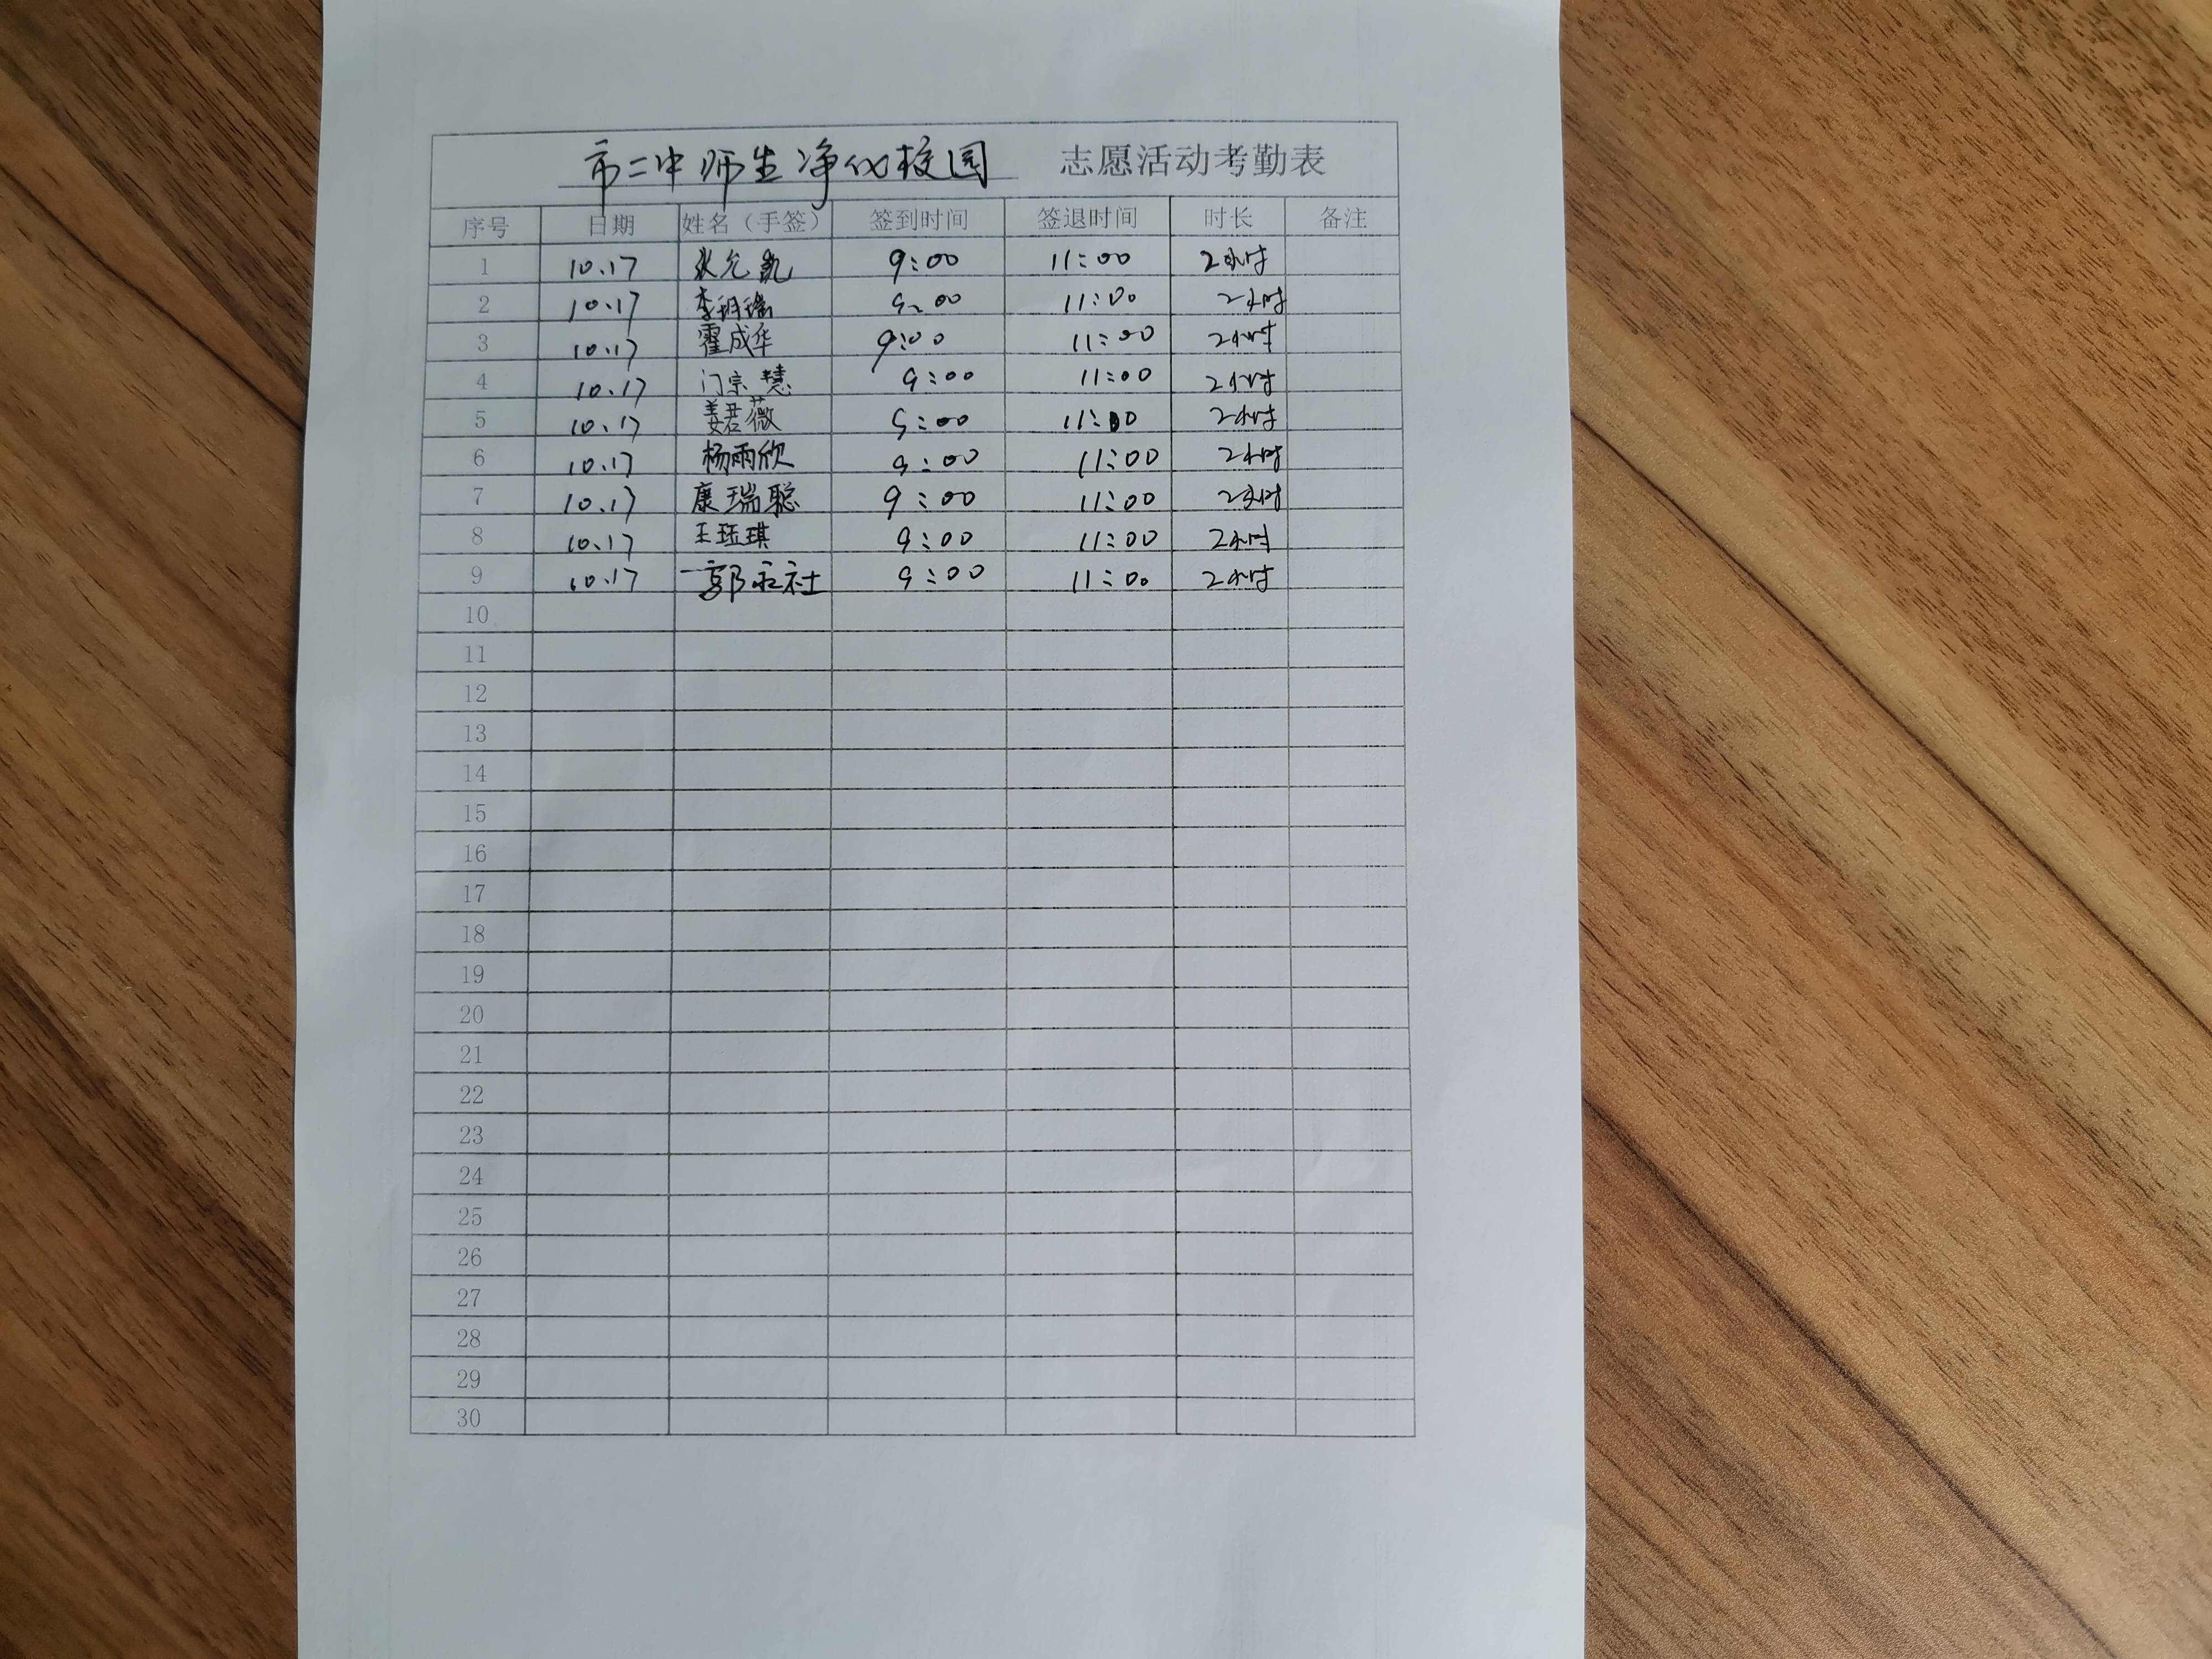 市二中师生净化校园 志愿活动考勤表
序号 日期 姓名（手签） 签到时间 签退时间 时长 备注
1 10.17 9:00 11:00 2小时
2 10.17 9:00 11:00 2小时
3 10.17 霍成华 9:00 11:00 2小时
4 10.17 门宗慧 9:00 11:00 2小时
5 10.17 姜君薇 9:00 11:00 2小时
6 10.17 杨雨欣 9:00 11:00 2小时
7 10.17 康瑞聪 9:00 11:00 2小时
8 10.17 王珏琪 9:00 11:00 2小时
9 10.17 郭永社 9:00 11:00 2小时
10
11
12
13
14
15
16
17
18
19
20
21
22
23
24
25
26
27
28
29
30